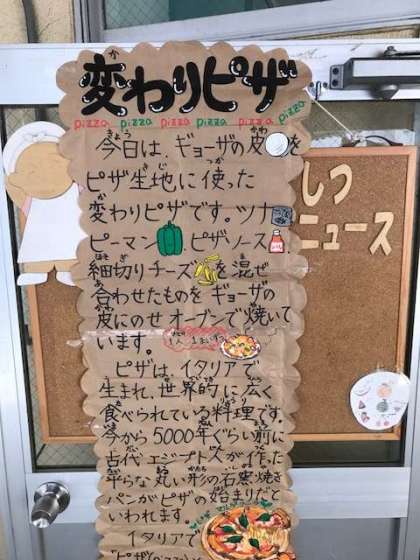 変わりピザ
pizza pizza pizza pizza pizza pizza
今日は、ギョーザの皮を
ピザ生地に使った
変わりピザです。ツナ
ピーマン、ピザソース
細切りチーズを混ぜ
合わせたものをギョーザの
皮にのせオーブンで焼いて
います。
ピザは、イタリアで
生まれ、世界的に広く
食べられている料理です。
今から5000年ぐらい前に
古代エジプト人が作った
平らな丸い形の石窯焼き
パンがピザの始まりだと
いわれます。
イタリアで
しつ
ニュース